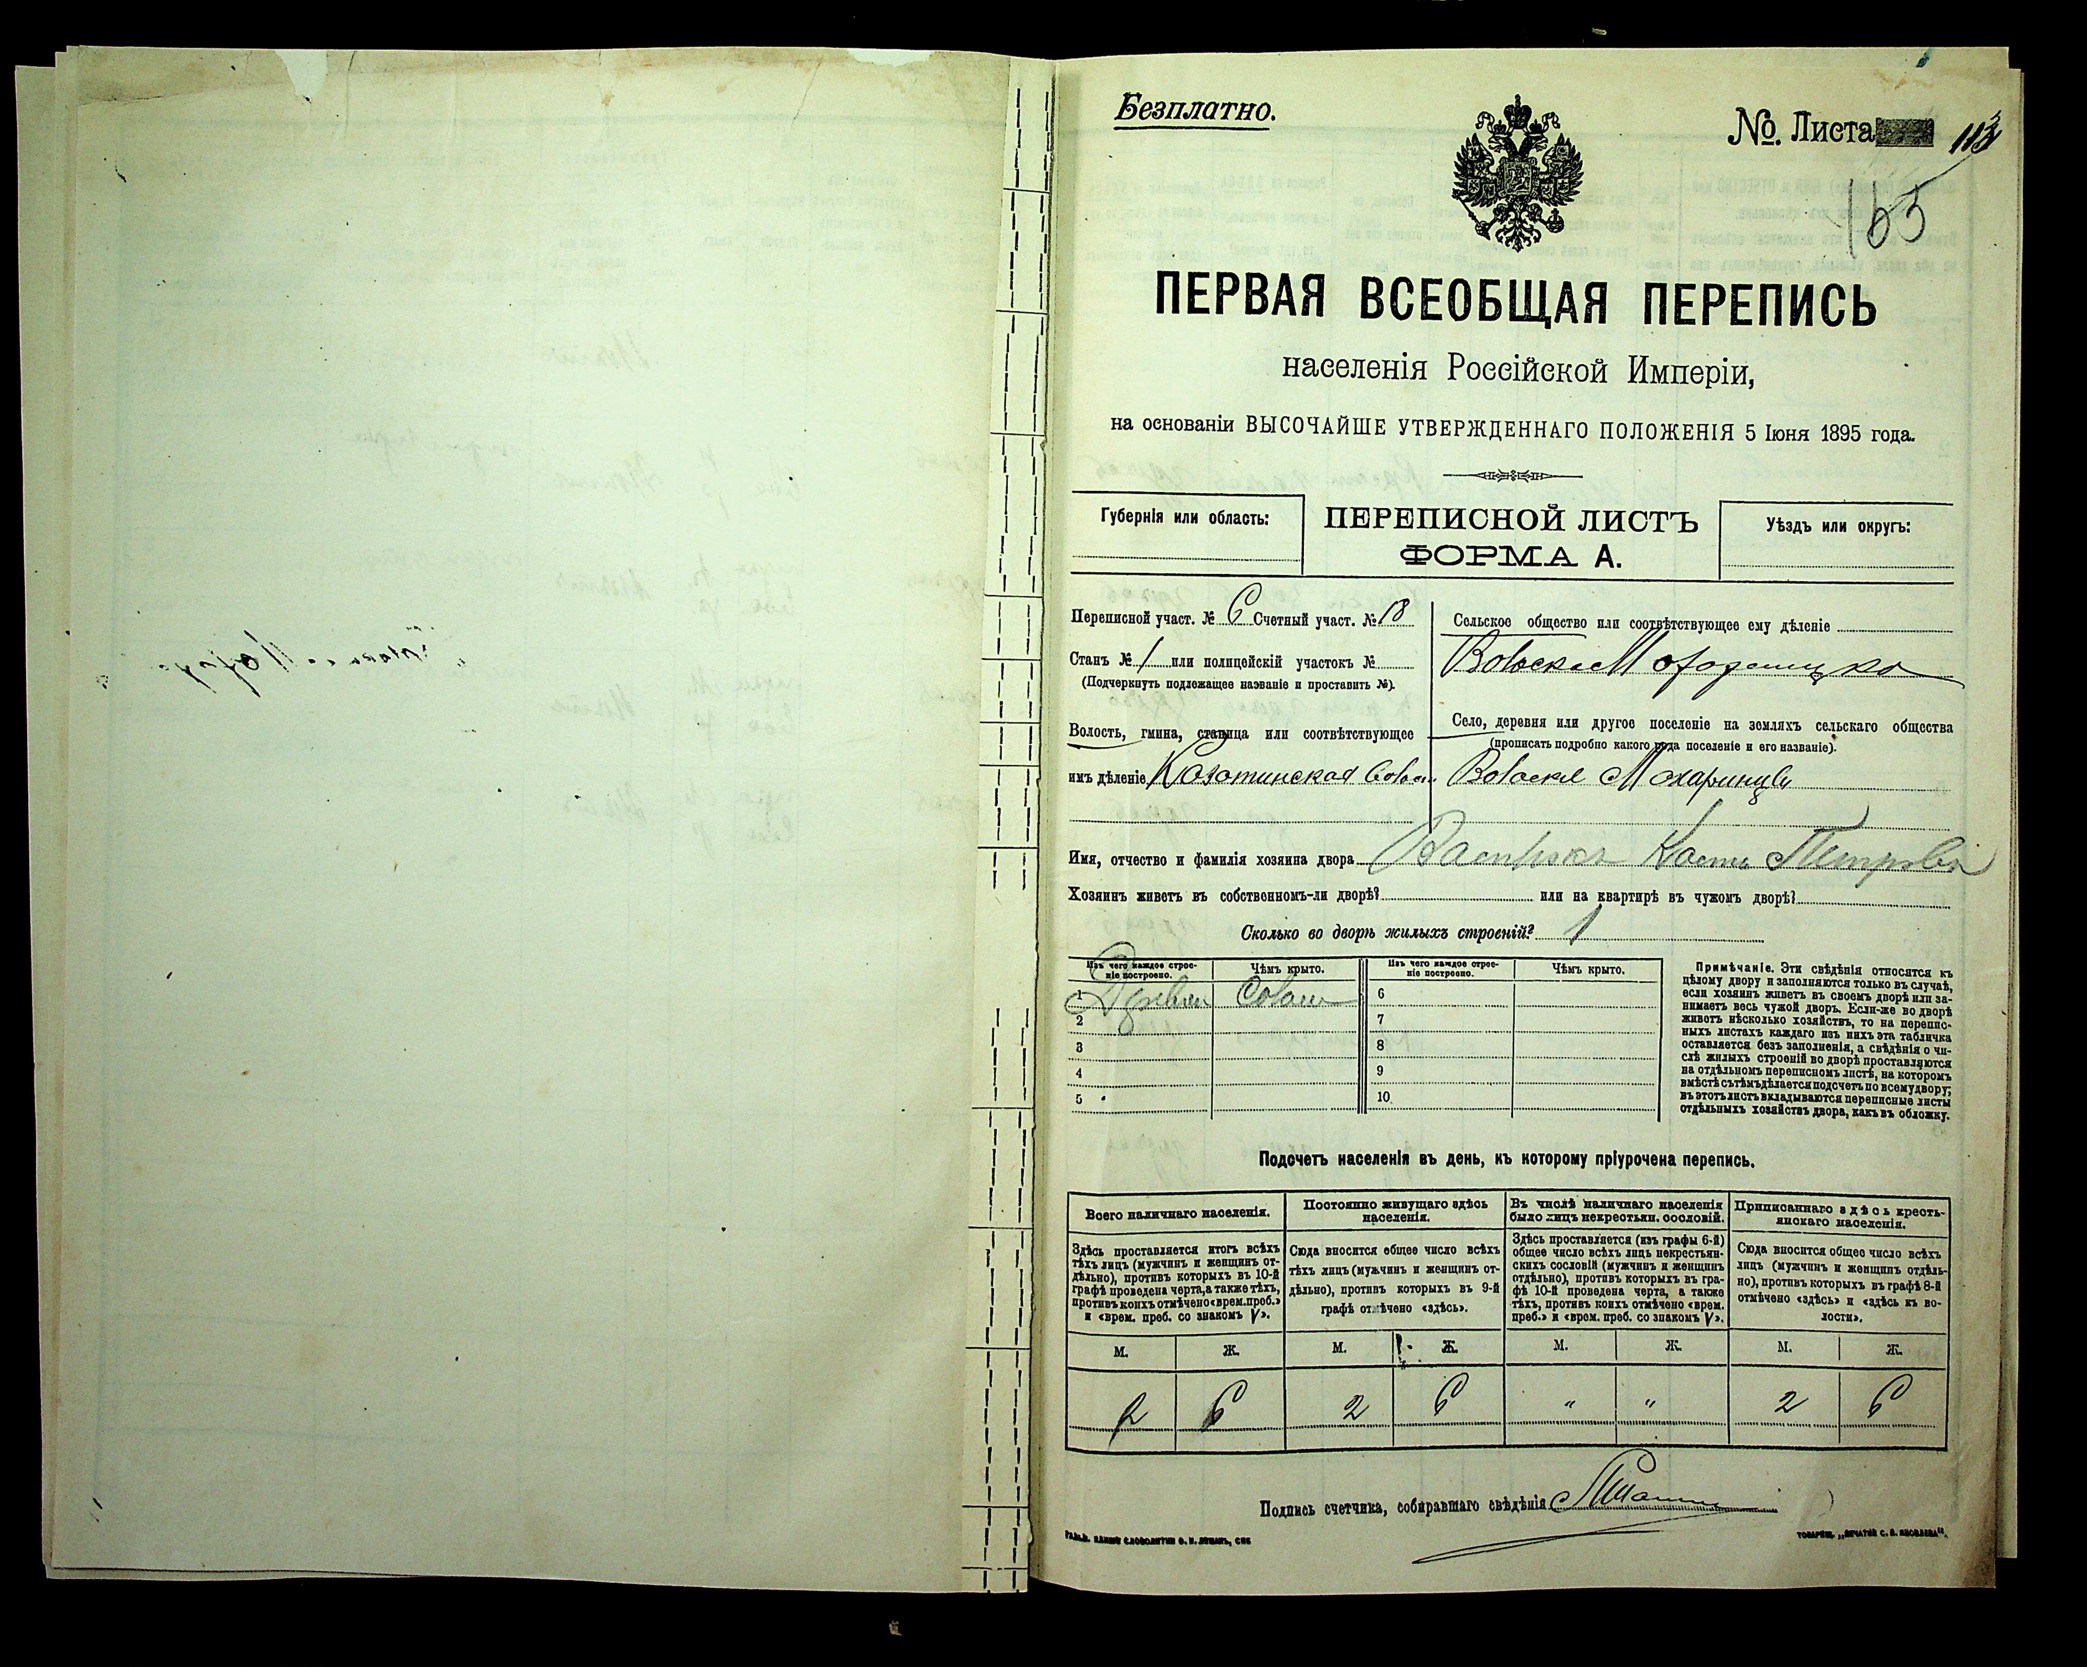 Безплатно.
№ Листа
ПЕРВАЯ ВСЕОБЩАЯ ПЕРЕПИСЬ
населенія Россійской Имперіи,
на основаніи ВЫСОЧАЙШЕ УТВЕРЖДЕННАГО ПОЛОЖЕНІЯ 5 Іюня 1895 года.
Губернія или область:
ПЕРЕПИСНОЙ ЛИСТЪ
ФОРМА А.
Уѣздъ или округъ:
Переписной участ. № 6 Счетный участ. № 18
Станъ № 1 или полицейскій участокъ №
(Подчеркнуть подлежащее названіе и проставить №).
Волость, гмина, станица или соотвѣтствующее
имъ дѣленіе
Сельское общество или соотвѣтствующее ему дѣленіе
Село, деревня или другое поселеніе на земляхъ сельскаго общества
(прописать подробно какого рода поселеніе и его названіе).
Махаринцы
Имя, отчество и фамилія хозяина двора
Хозяинъ живетъ въ собственномъ-ли дворѣ? или на квартирѣ въ чужомъ дворѣ?
Сколько во дворѣ жилыхъ строеній? 1
Изъ чего каждое строе-
ніе построено.
Чѣмъ крыто.
1
2
3
4
5
Изъ чего каждое строе-
ніе построено.
Чѣмъ крыто.
6
7
8
9
10
Примѣчаніе. Эти свѣдѣнія относятся къ
цѣлому двору и заполняются только въ случаѣ,
если хозяинъ живетъ въ своемъ дворѣ или за-
нимаетъ весь чужой дворъ. Если-же во дворѣ
живетъ нѣсколько хозяйствъ, то на перепис-
ныхъ листахъ каждаго изъ нихъ эта табличка
оставляется безъ заполненія, а свѣдѣнія о чи-
слѣ жилыхъ строеній во дворѣ проставляются
на отдѣльномъ переписномъ листѣ, на которомъ
вмѣстѣ съ тѣмъ дѣлается подсчетъ по всему двору;
въ этотъ листъ вкладываются переписные листы
отдѣльныхъ хозяйствъ двора, какъ въ обложку.
Подсчетъ населенія въ день, къ которому пріурочена перепись.
Всего наличнаго населенія.
Здѣсь проставляется итогъ всѣхъ
тѣхъ лицъ (мужчинъ и женщинъ от-
дѣльно), противъ которыхъ въ 10-й
графѣ проведена черта, а также тѣхъ,
противъ коихъ отмѣчено «врем. преб.»
и «врем. преб. со знакомъ V».
М. Ж.
2 6
Постоянно живущаго здѣсь
населенія.
Сюда вносится общее число всѣхъ
тѣхъ лицъ (мужчинъ и женщинъ от-
дѣльно), противъ которыхъ въ 9-й
графѣ отмѣчено «здѣсь».
М. Ж.
2 6
Въ числѣ наличнаго населенія
было лицъ некрестьян. сословій.
Здѣсь проставляется (изъ графы 6-й)
общее число всѣхъ лицъ некрестьян-
скихъ сословій (мужчинъ и женщинъ
отдѣльно), противъ которыхъ въ гра-
фѣ 10-й проведена черта, а также
тѣхъ, противъ коихъ отмѣчено «врем.
преб.» и «врем. преб. со знакомъ V».
М. Ж.
" "
Приписаннаго здѣсь кресть-
янскаго населенія.
Сюда вносится общее число всѣхъ
лицъ (мужчинъ и женщинъ отдѣль-
но), противъ которыхъ въ графѣ 8-й
отмѣчено «здѣсь» и «здѣсь къ во-
лости».
М. Ж.
2 6
Подпись счетчика, собиравшаго свѣдѣнія
ТОВАРИЩ. „ПЕЧАТНЯ С. П. ЯКОВЛЕВА".